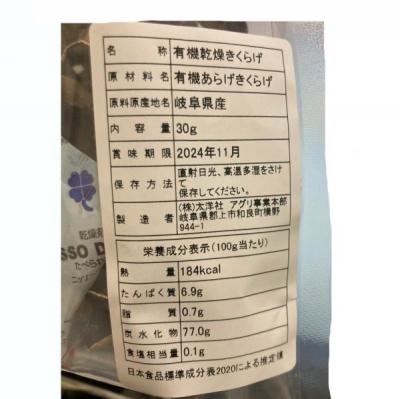 名　　称 有機乾燥きくらげ
原材料名 有機あらげきくらげ
原料原産地名 岐阜県産
内容量 30g
賞味期限 2024年11月
保存方法 直射日光、高温多湿をさけて
保存してください。
製造者 (株)太洋社 アグリ事業本部
岐阜県郡上市和良町横野
944-1
栄養成分表示(100g当たり)
熱　　量 184kcal
たんぱく質 6.9g
脂　　質 0.7g
炭水化物 77.0g
食塩相当量 0.1g
日本食品標準成分表2020による推定値
乾燥剤
SSO D
たべられ